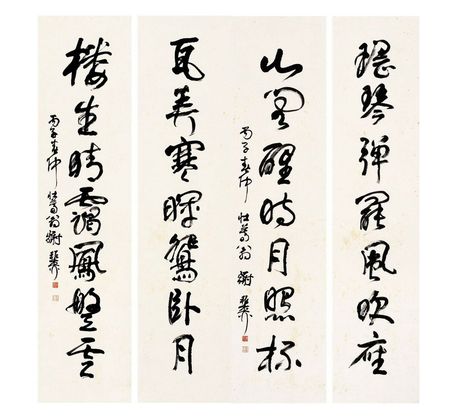 瑶琴彈罷風吹座
山醒時月照杯
丙子春仲 壯暮翁 謝稚柳
瓦弄寒暉鴛臥月
樓生晴靄鳳盤雲
丙子春仲 壯暮翁 謝稚柳